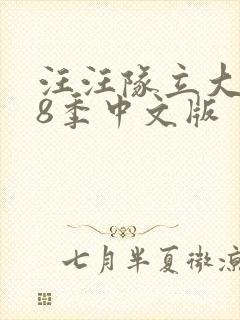 汪汪队立大
8季中文版
七月半夏微凉